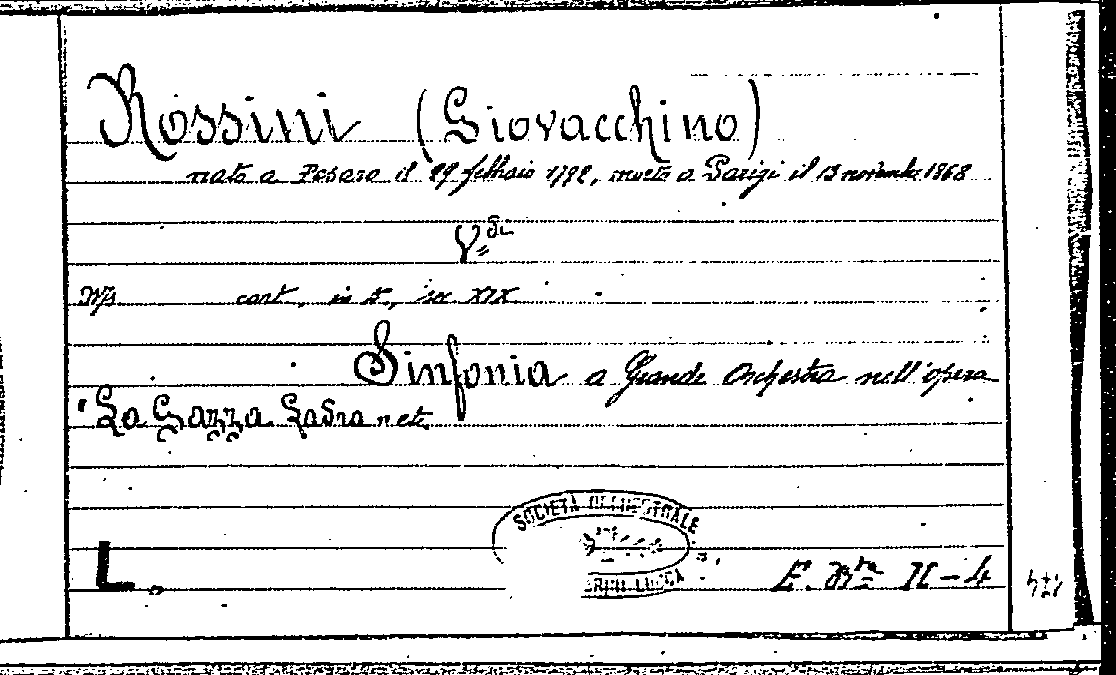 Rossini (Giovacchino)
nato a Pesaro il 29 febbraio 1792, morto a Parigi il 13 novembre 1868
V=di
Ms cart., in 5., sec XIX
Sinfonia a Grande Orchestra nell'opera
"La Gazza Ladra
SOCIETÀ ORCHESTRALE
LUCCA
L.
E. B II-4